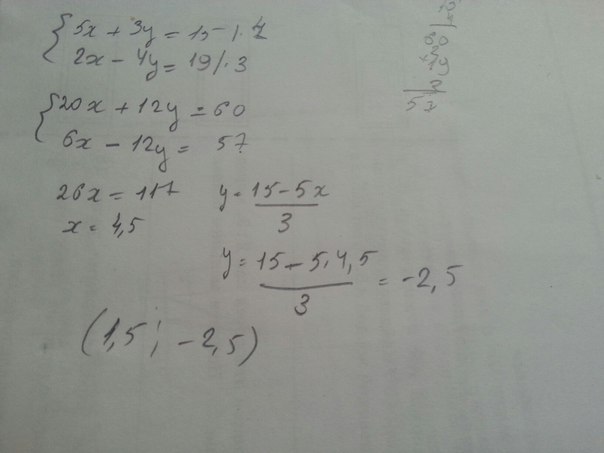 5x + 3y = 15 | · 4
2x - 4y = 19 | · 3
20x + 12y = 60
6x - 12y = 57
26x = 117
x = 4,5
y = 15-5x / 3
y = 15-5·4,5 / 3 = -2,5
(1,5; -2,5)
60
19
3
57